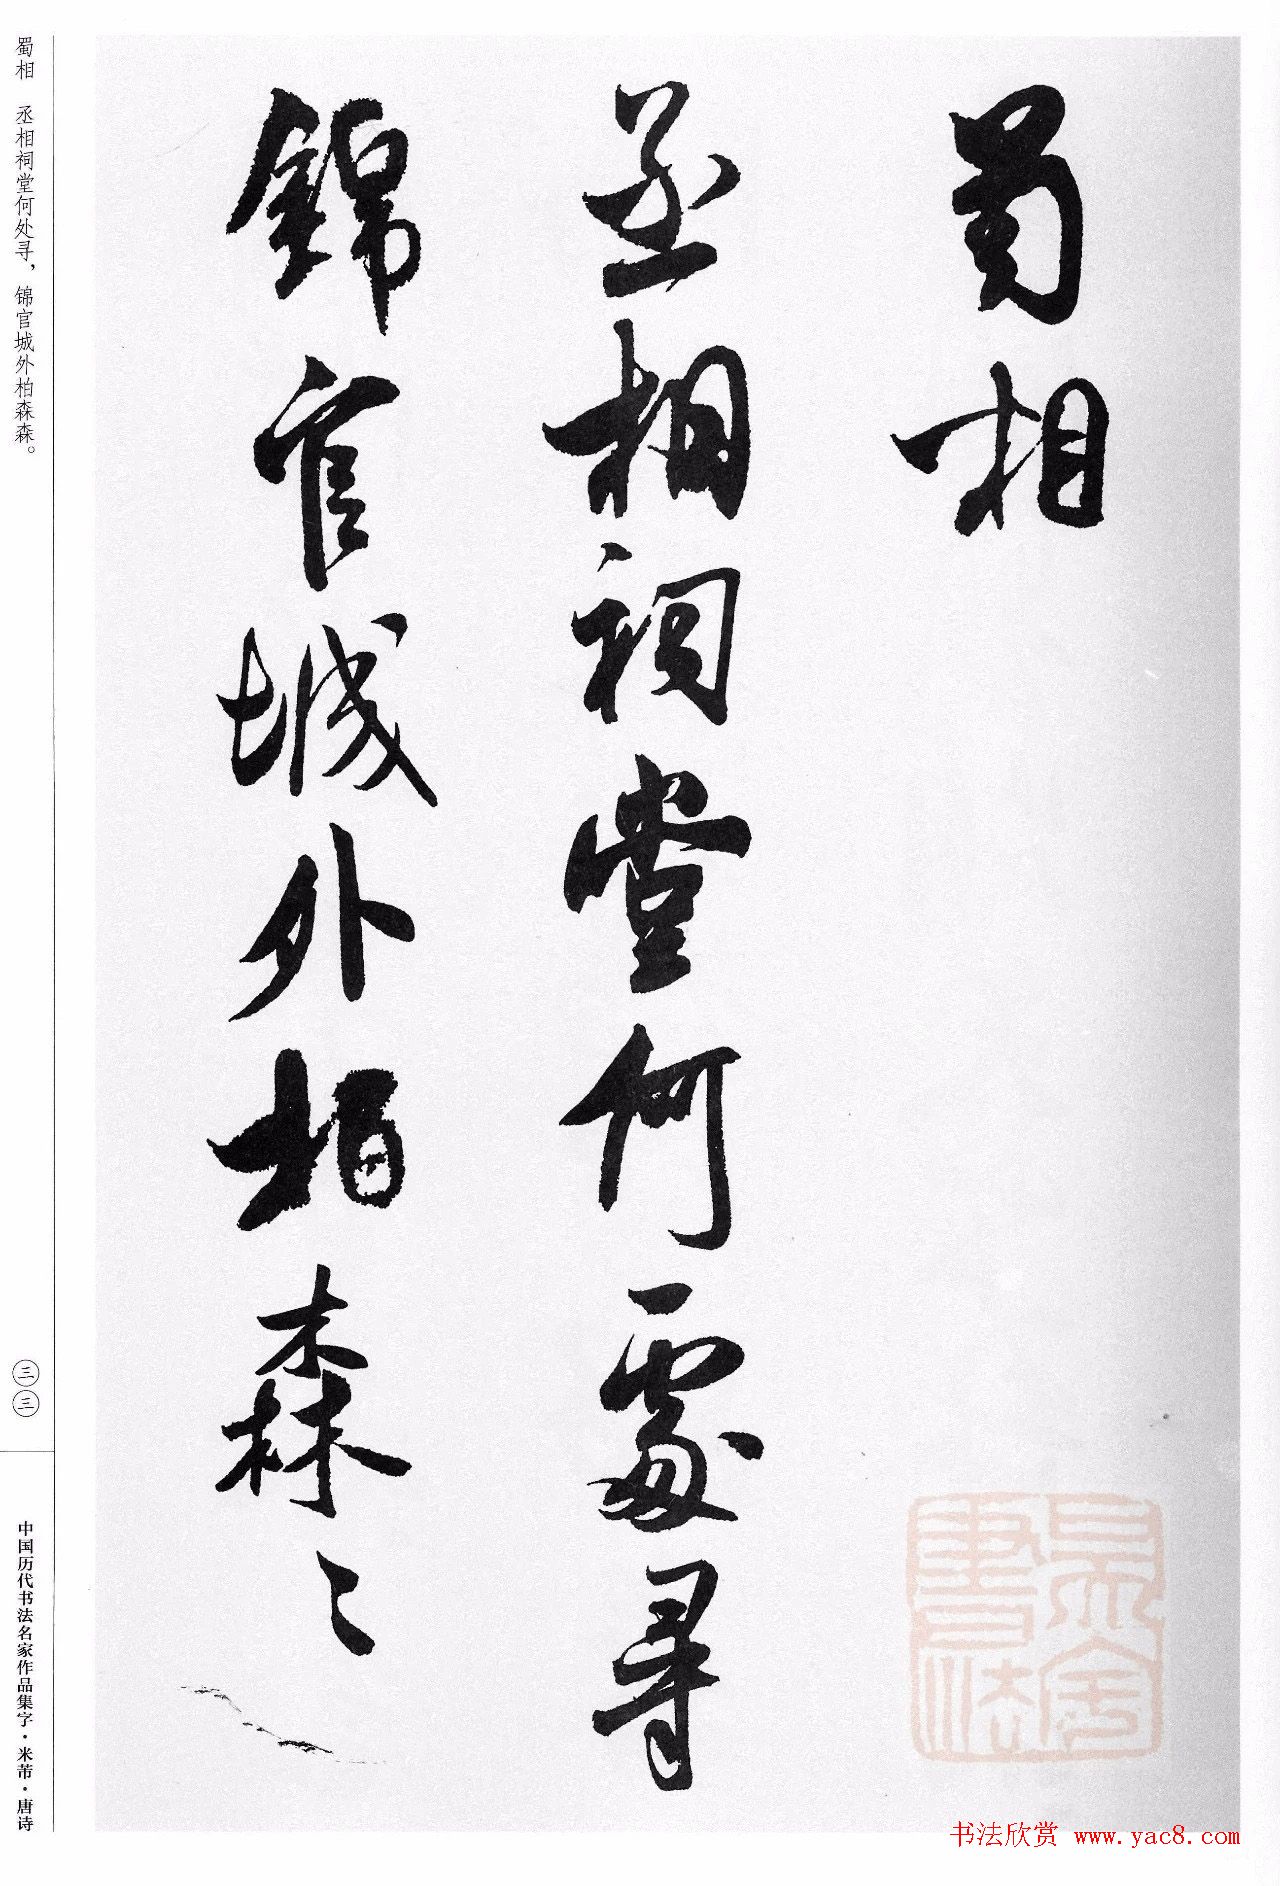 蜀相
丞相祠堂何處尋
錦官城外柏森〻
蜀相 丞相祠堂何处寻，锦官城外柏森森。
三三
中国历代书法名家作品集字·米芾·唐诗
书法欣赏 www.yac8.com